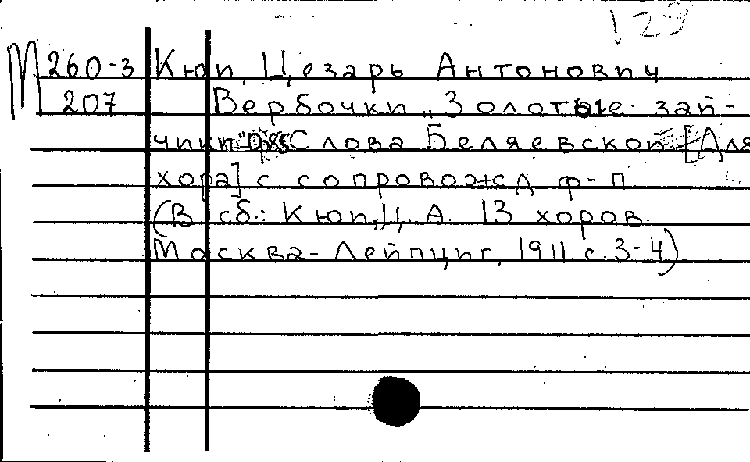 129
М 260-3 Кюи, Цезарь Антонович
207 Вербочки „Золотые зай-
чики" Слова Беляевской [Для
хора] с сопровожд ф-п
(В сб.: Кюи, Ц. А. 13 хоров
Москва-Лейпциг, 1911 с. 3-4)